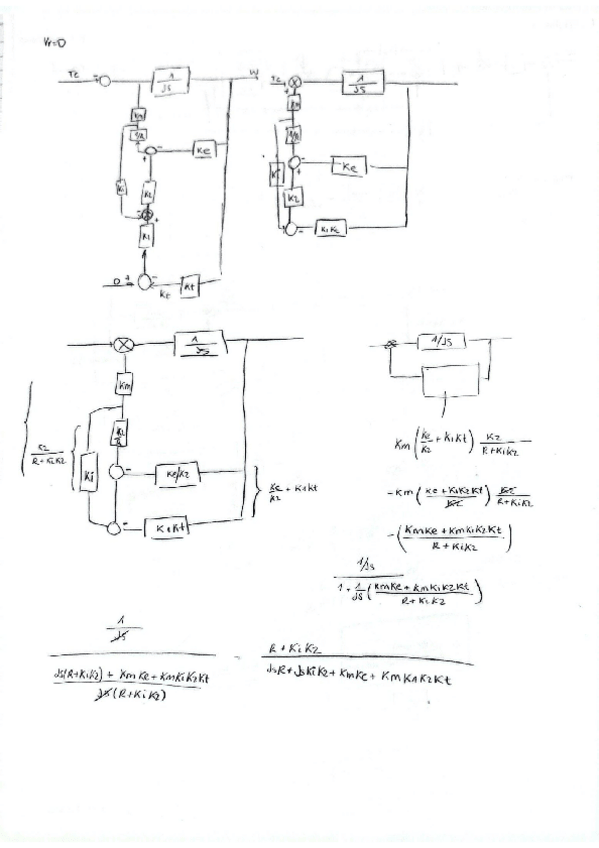 Vr=0
Tc
1
JS
W
Km
1/R
Ke
Ki
K2
K1
0
Kt
Kt
Tc
1
JS
Km
1/R
Ki
Ke
K2
K1 K2
1
JS
Km
K2
R
Ki
Ke/K2
K1Kt
K2
R+KiK2
Ke/K2 + K1Kt
1/JS
Km (Ke/K2 + K1Kt) K2/R+KiK2
-Km (Ke+K1K2Kt/K2) K2/R+KiK2
-(KmKe+KmK1K2Kt/R+KiK2)
1/JS
1+1/JS (KmKe+KmK1K2Kt/R+KiK2)
1
JS
JS(R+KiK2)+KmKe+KmK1K2Kt
JS(R+KiK2)
R+KiK2
JSR+JSKiK2+KmKe+KmK1K2Kt